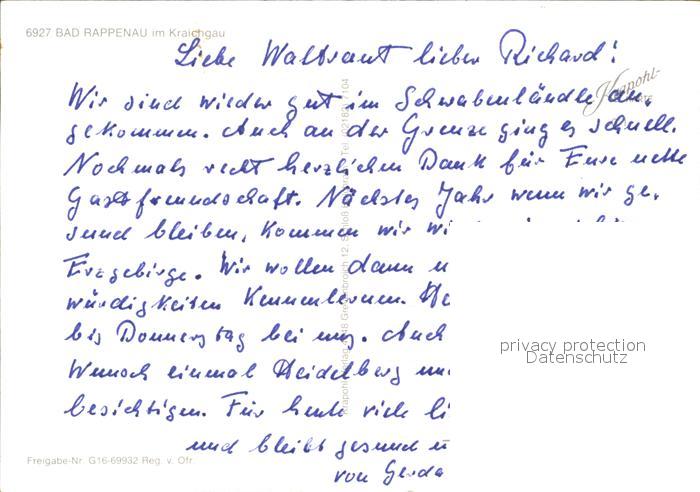 6927 BAD RAPPENAU im Kraichgau
Liebe Waltraut lieber Richard!
Wir sind wieder gut im Schwabenländle an-
gekommen. Auch an der Grenze ging es schnell.
Nochmals recht herzlichen Dank für Eure nette
Gastfreundschaft. Nächstes Jahr wenn wir ge-
sund bleiben, kommen wir
Erzgebirge. Wir wollen dann
würdigkeiten kennenlernen.
bis Donnerstag bei uns. Auch
Wunsch einmal Heidelberg
besichtigen. Für heute viele
und bleibt gesund
von Gerda
privacy protection
Datenschutz
Freigabe-Nr. G16-69932 Reg. v. Ofr.